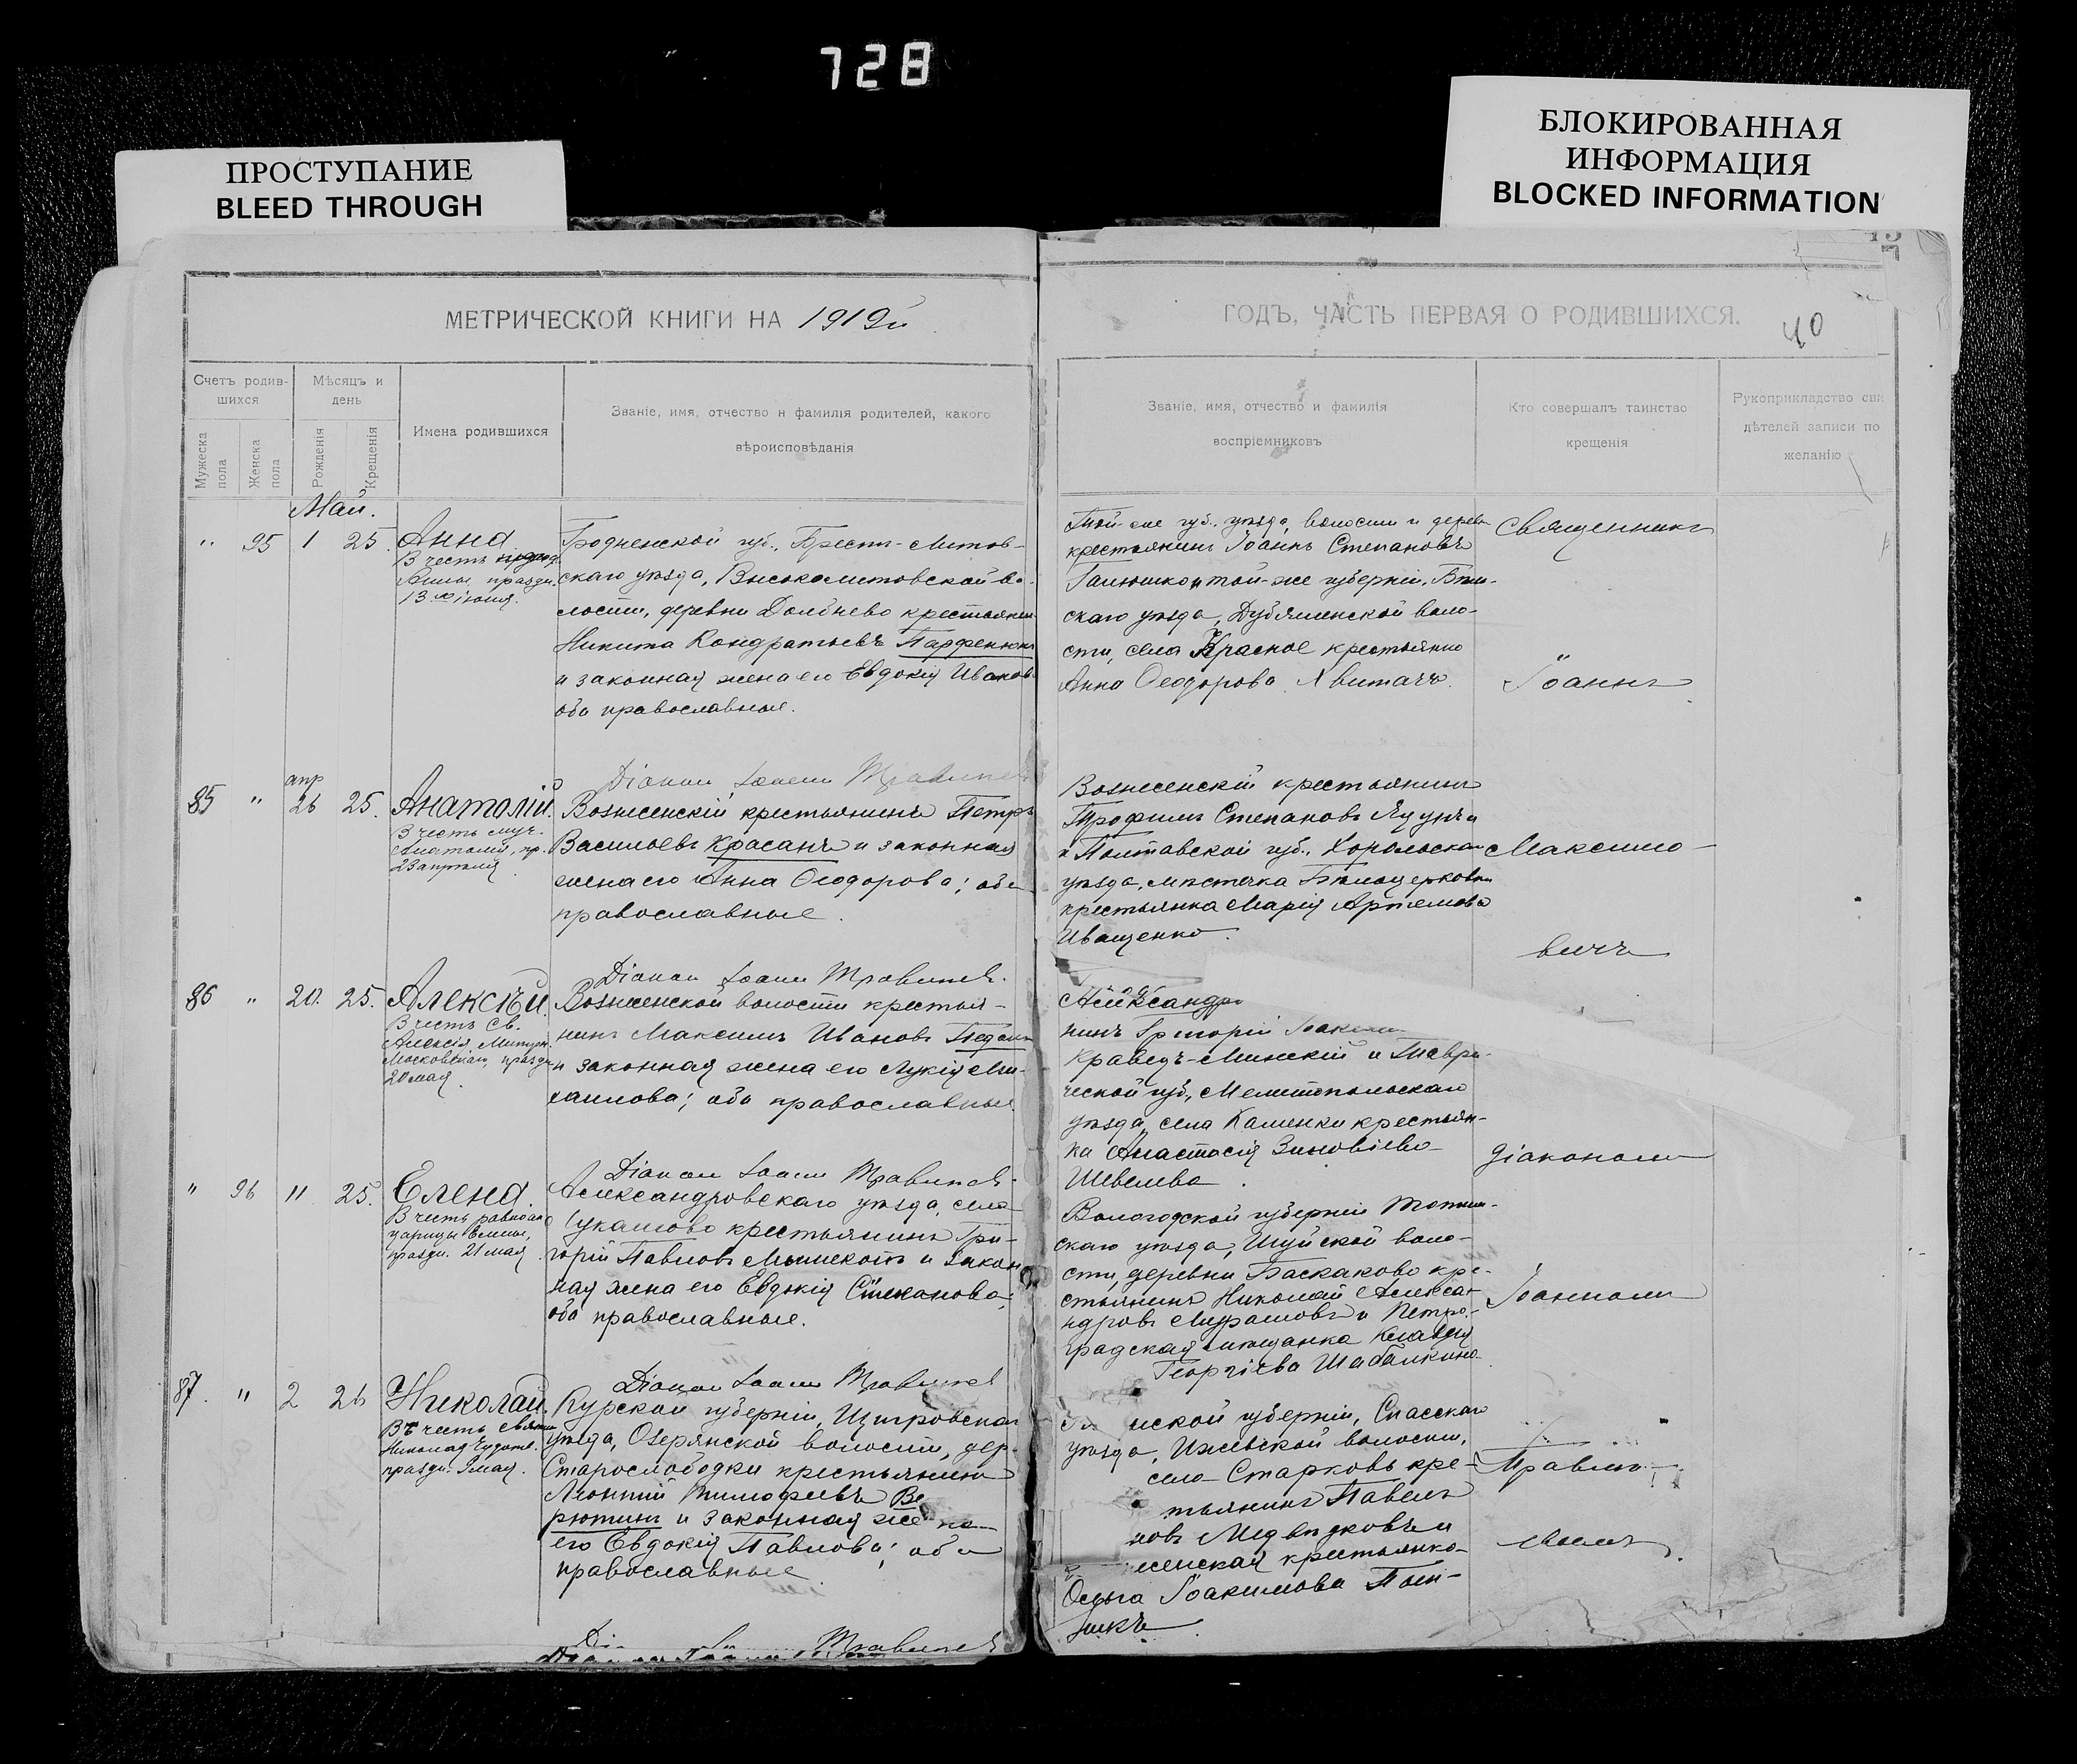 728
ПРОСТУПАНИЕ
BLEED THROUGH
БЛОКИРОВАННАЯ
ИНФОРМАЦИЯ
BLOCKED INFORMATION
МЕТРИЧЕСКОЙ КНИГИ НА 1919й
ГОДЪ, ЧАСТЬ ПЕРВАЯ О РОДИВШИХСЯ.
40
Счетъ родив-
шихся
Мѣсяцъ и
день
Мужеска
пола
Женска
пола
Рожденія
Крещенія
Имена родившихся
Званіе, имя, отчество и фамилія родителей, какого
вѣроисповѣданія
Званіе, имя, отчество и фамилія
воспріемниковъ
Кто совершалъ таинство
крещенія
Рукоприкладство сви
дѣтелей записи по
желанію
Май.
" 95 1 25. Анна
В честь
Анны, праздн.
13 іюня.
Гродненской губ., Брест-Литов-
скаго уѣзда, Высоколитовской во-
лости, деревни Долбнево крестьянин
Никита Кондратьевъ Парфенюкъ
и законная жена его Евдокія Иванов
оба православные.
Той-же губ., уѣзда, волости и дерев
крестьянинъ Іоаннъ Степановъ
той-же губерніи,
скаго уѣзда, волο-
сти, села Красное крестьянка
Анна Ѳеодорова
Священникъ
Іоаннъ
Діакон Іоанн Травинъ
85 " апр 26 25. Анатолій.
В честь муч.
Анатолія, пр.
23 апрѣля
Вознесенскій крестьянинъ Петръ
Васильевъ Красанъ и законная
жена его Анна Ѳеодорова; оба
православные.
Вознесенскій крестьянинъ
Трофимъ Степановъ
и Полтавской губ., Хорольскаго
уѣзда, мѣстечка Бѣлоцерковки
крестьянка Марія Артемова
Иващенко.
Максимо-
вичъ
Діакон Іоанн
86 " 20. 25. Алексѣй.
В честь Св.
Алексія Митроп.
Московскаго, праздн.
20 мая.
Вознесенской волости крестья-
нинъ Максимъ Ивановъ
и законная жена его Лукія Ми-
хаилова; оба православные.
Александр
нинъ Григорій
Кравец-Минскій и Таври-
ческой губ., Мелитопольскаго
уѣзда, села Каменки крестьян-
ка Анастасія Зиновіева
Шевелева.
діакономъ
Діакон Іоанн
" 96 11 25. Елена.
В честь равноап
царицы Елены,
праздн. 21 мая
Александровскаго уѣзда, села
Лукашово крестьянинъ Гри-
горій Павловъ и закон
ная жена его Евдокія Степанова;
оба православные.
Вологодской губерніи
скаго уѣзда, Шуйской воло-
сти, деревни Баскаково кре-
стьянинъ Николай Алексан
ндровъ и Петро-
градская мѣщанка Клавдія
Георгіева Шабалкина.
Іоанномъ
Діакон Іоанн
87. " 2 26 Николай.
Въ честь святит.
Николая Чудотв.
праздн. 9 мая.
Курской губерніи, Щигровскаго
уѣзда, Озерянской волости, дер.
Старослободки крестьянинъ
Леонтій Тимофеевъ Ве
рютинъ и законная же на
его Евдокія Павлова; оба
православные.
нской губерніи, Спасскаго
уѣзда, Ижевской волости,
село Старковъ кре-
тьянинъ Павелъ
новъ Медвѣдковъ и
сенская крестьянка
Ольга Іоакимова